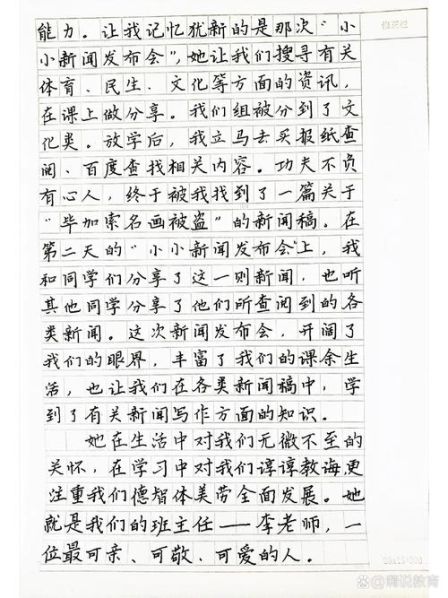 能力。让我记忆犹新的是那次“小
小新闻发布会”,她让我们搜寻有关
体育、民生、文化等方面的资讯,
在课上做分享。我们组被分到了文
化类。放学后,我立马去买报纸查
阅、百度查找相关内容。功夫不负
有心人,终于被我找到了一篇关于
“毕加索名画被盗”的新闻稿。在
第二天的“小小新闻发布会”上,我
和同学们分享了这一则新闻,也听
其他同学分享了他们所查阅到的各
类新闻。这次新闻发布会,开阔了
我们的眼界,丰富了我们的课余生
活,也让我们在各类新闻稿中,学
到了有关新闻写作方面的知识。
她在生活中对我们无微不至的
关怀,在学习中对我们谆谆教诲更
注重我们德智体美劳全面发展。她
就是我们的班主任——李老师,一
位最可亲、可敬、可爱的人。